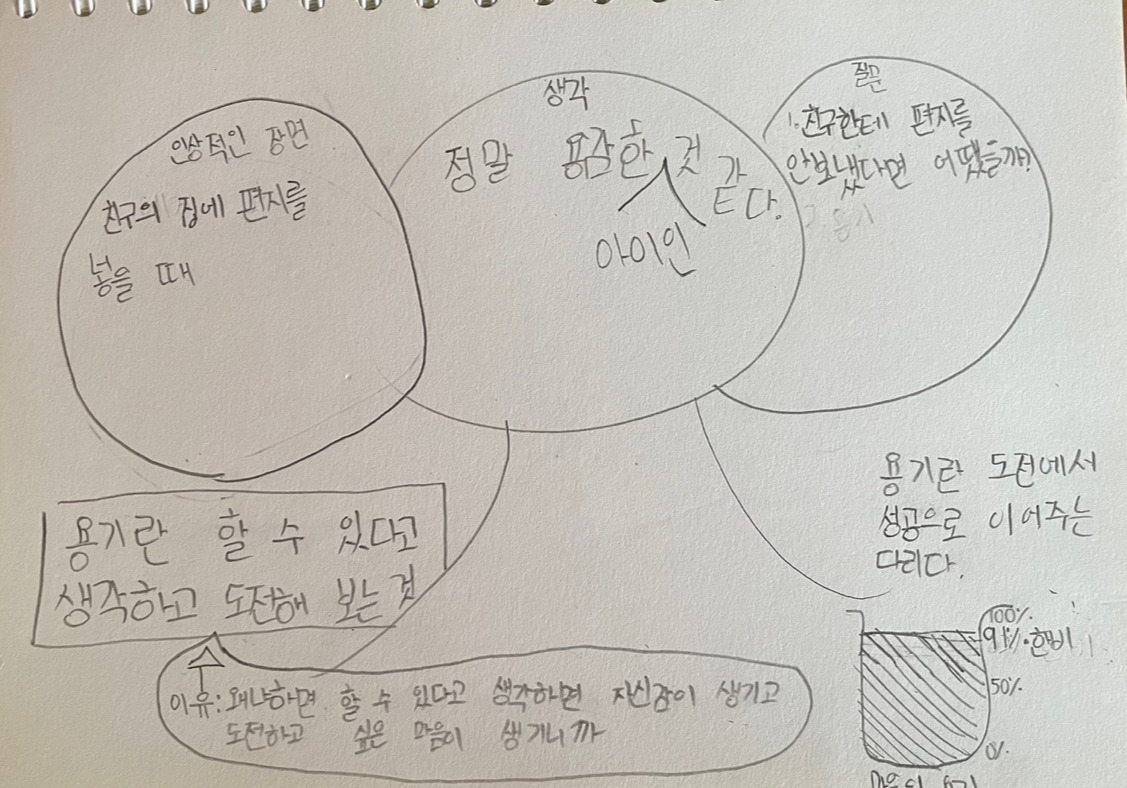 인상적인 장면
친구의 집에 편지를
넣을 때
생각
정말 용감한 것 같다.
아이인
질문
1. 친구한테 편지를
안보냈다면 어땠을까?
용기란 할 수 있다고
생각하고 도전해 보는 것
이유: 왜냐하면 할 수 있다고 생각하면 자신감이 생기고
도전하고 싶은 마음이 생기니까
용기란 도전에서
성공으로 이어주는
다리다.
100%
50%
0%